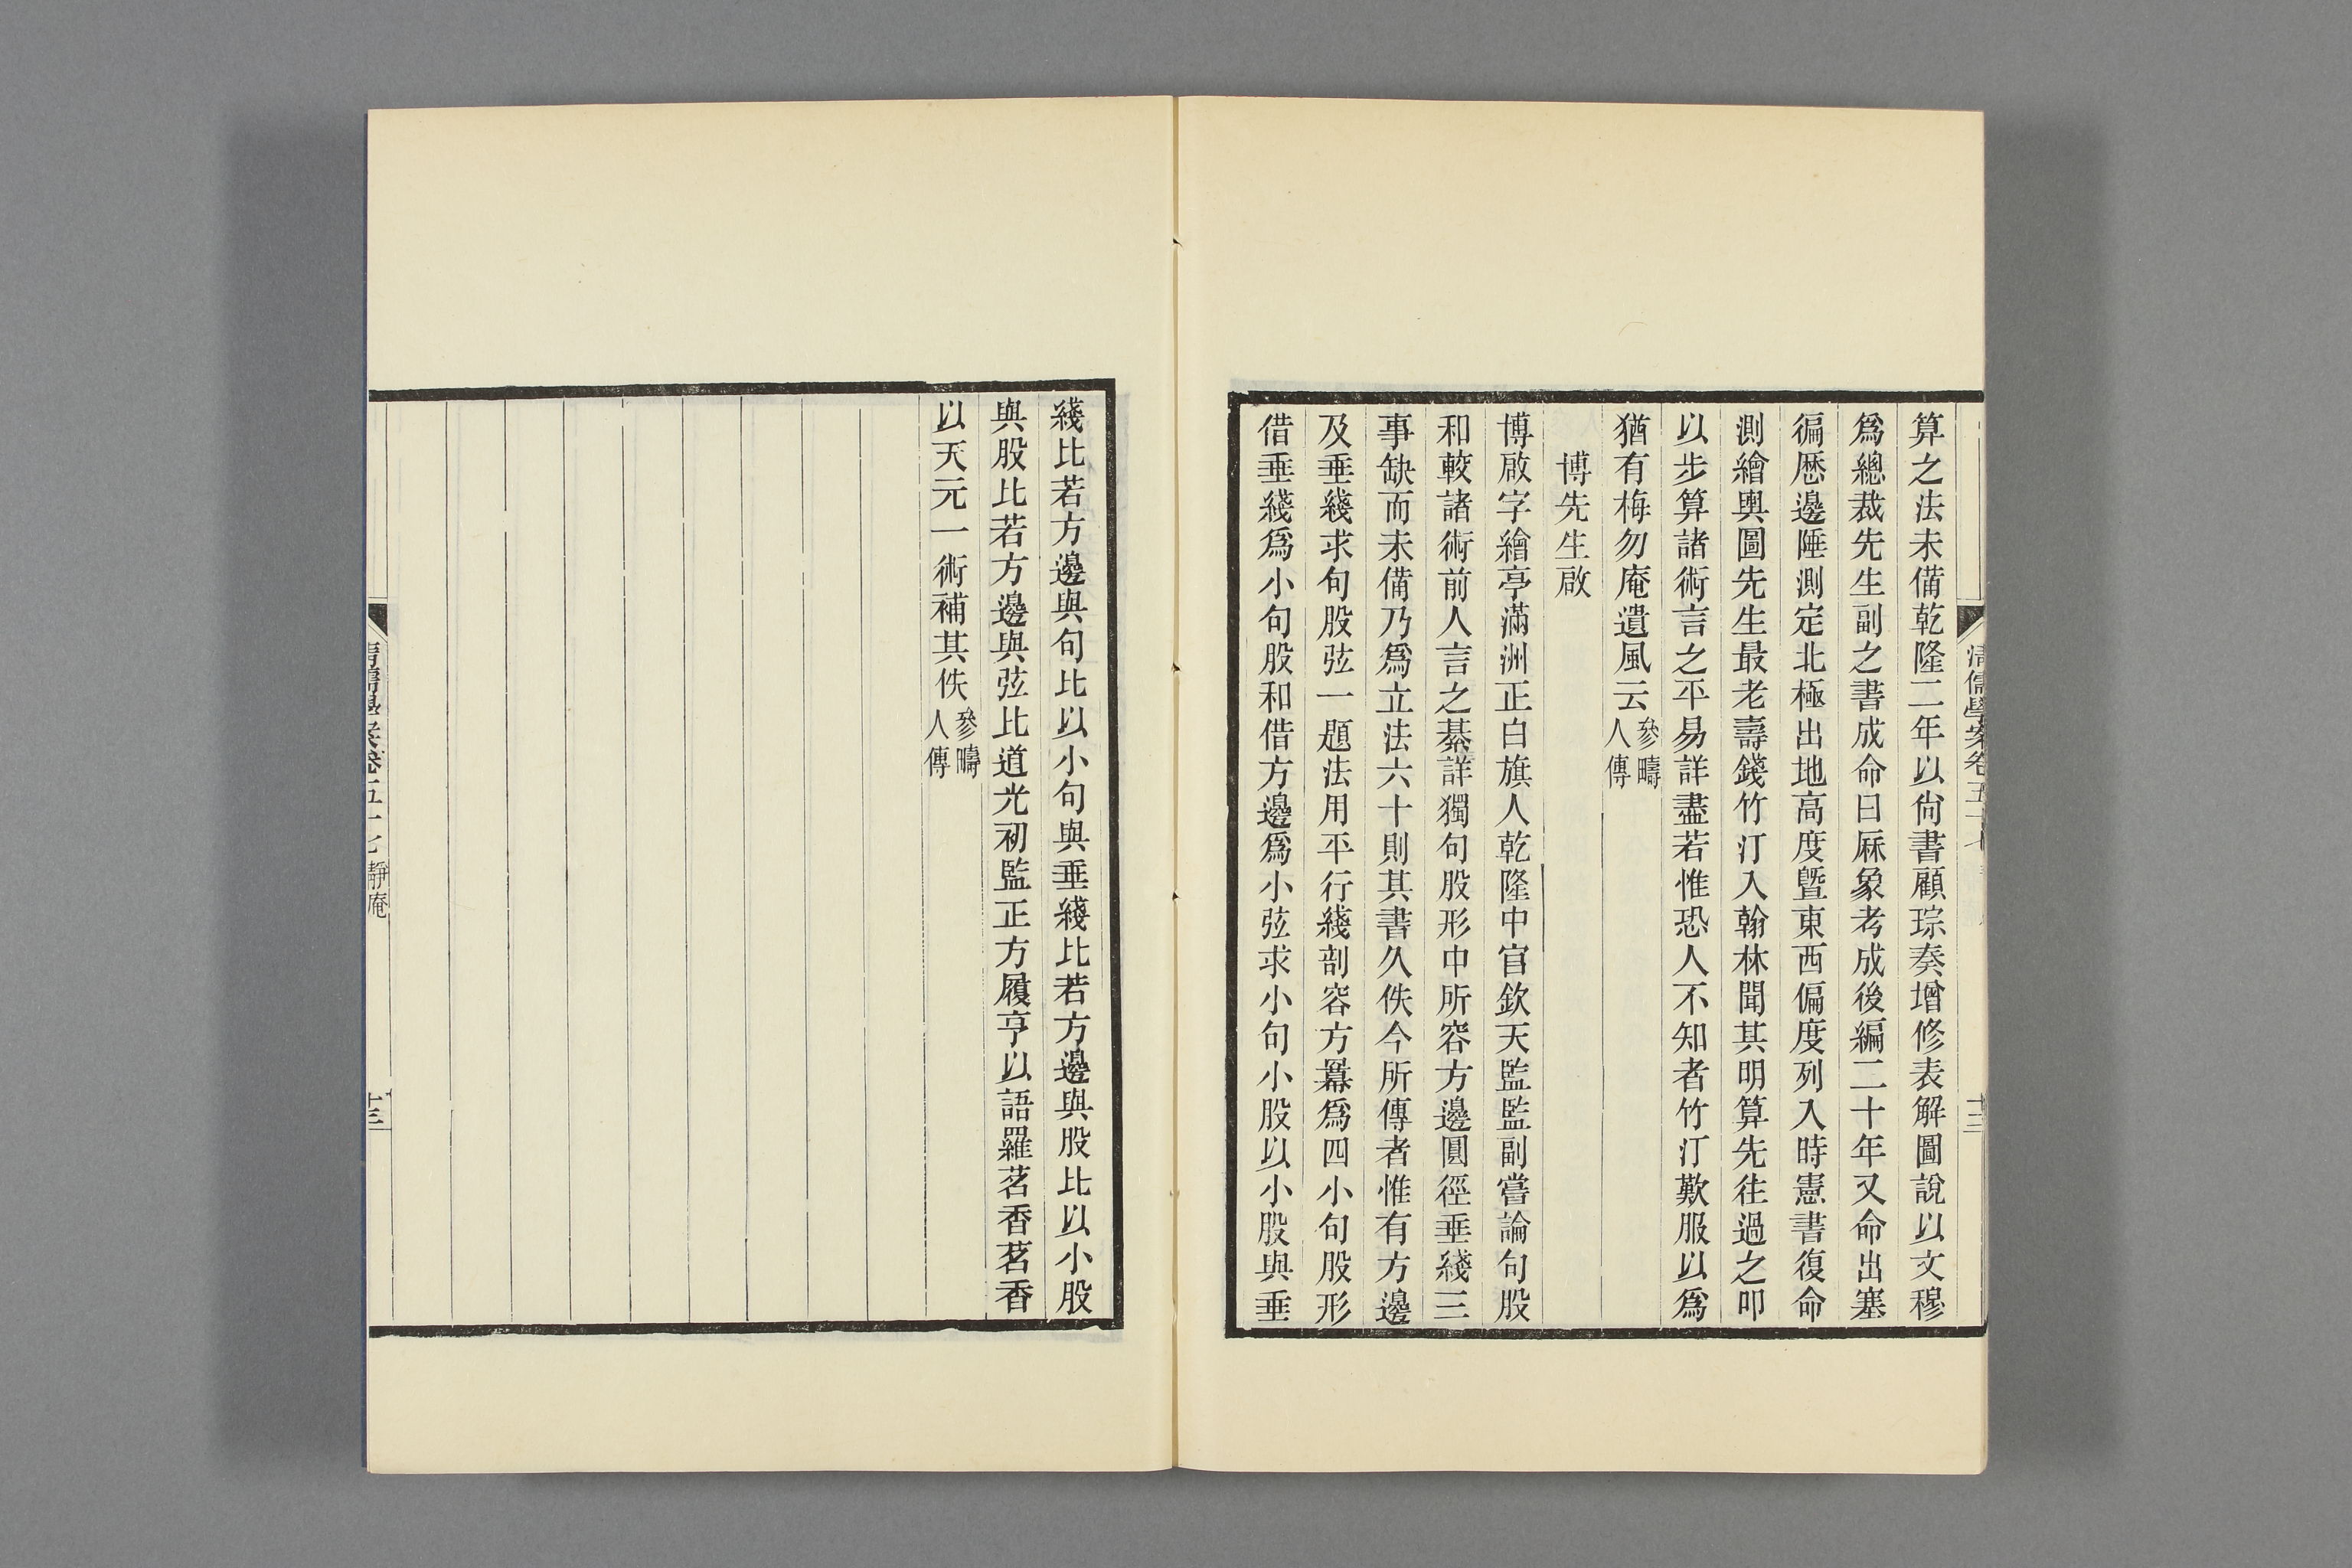 算之法未備乾隆二年以尙書顧琮奏增修表解圖說以文穆
爲總裁先生副之書成命曰厤象考成後編二十年又命出塞
徧厯邊陲測定北極出地高度曁東西偏度列入時憲書復命
測繪輿圖先生最老壽錢竹汀入翰林聞其明算先往過之叩
以步算諸術言之平易詳盡若惟恐人不知者竹汀歎服以爲
猶有梅勿庵遺風云參疇人傳
博先生啟
博啟字繪亭滿洲正白旗人乾隆中官欽天監監副嘗論句股
和較諸術前人言之綦詳獨句股形中所容方邊圓徑垂綫三
事缺而未備乃爲立法六十則其書久佚今所傳者惟有方邊
及垂綫求句股弦一題法用平行綫剖容方冪爲四小句股形
借垂綫爲小句股和借方邊爲小弦求小句小股以小股與垂
綫比若方邊與句比以小句與垂綫比若方邊與股比以小股
與股比若方邊與弦比道光初監正方履亨以語羅茗香茗香
以天元一術補其佚參疇人傳
清儒學案卷五十七 靜庵
十三